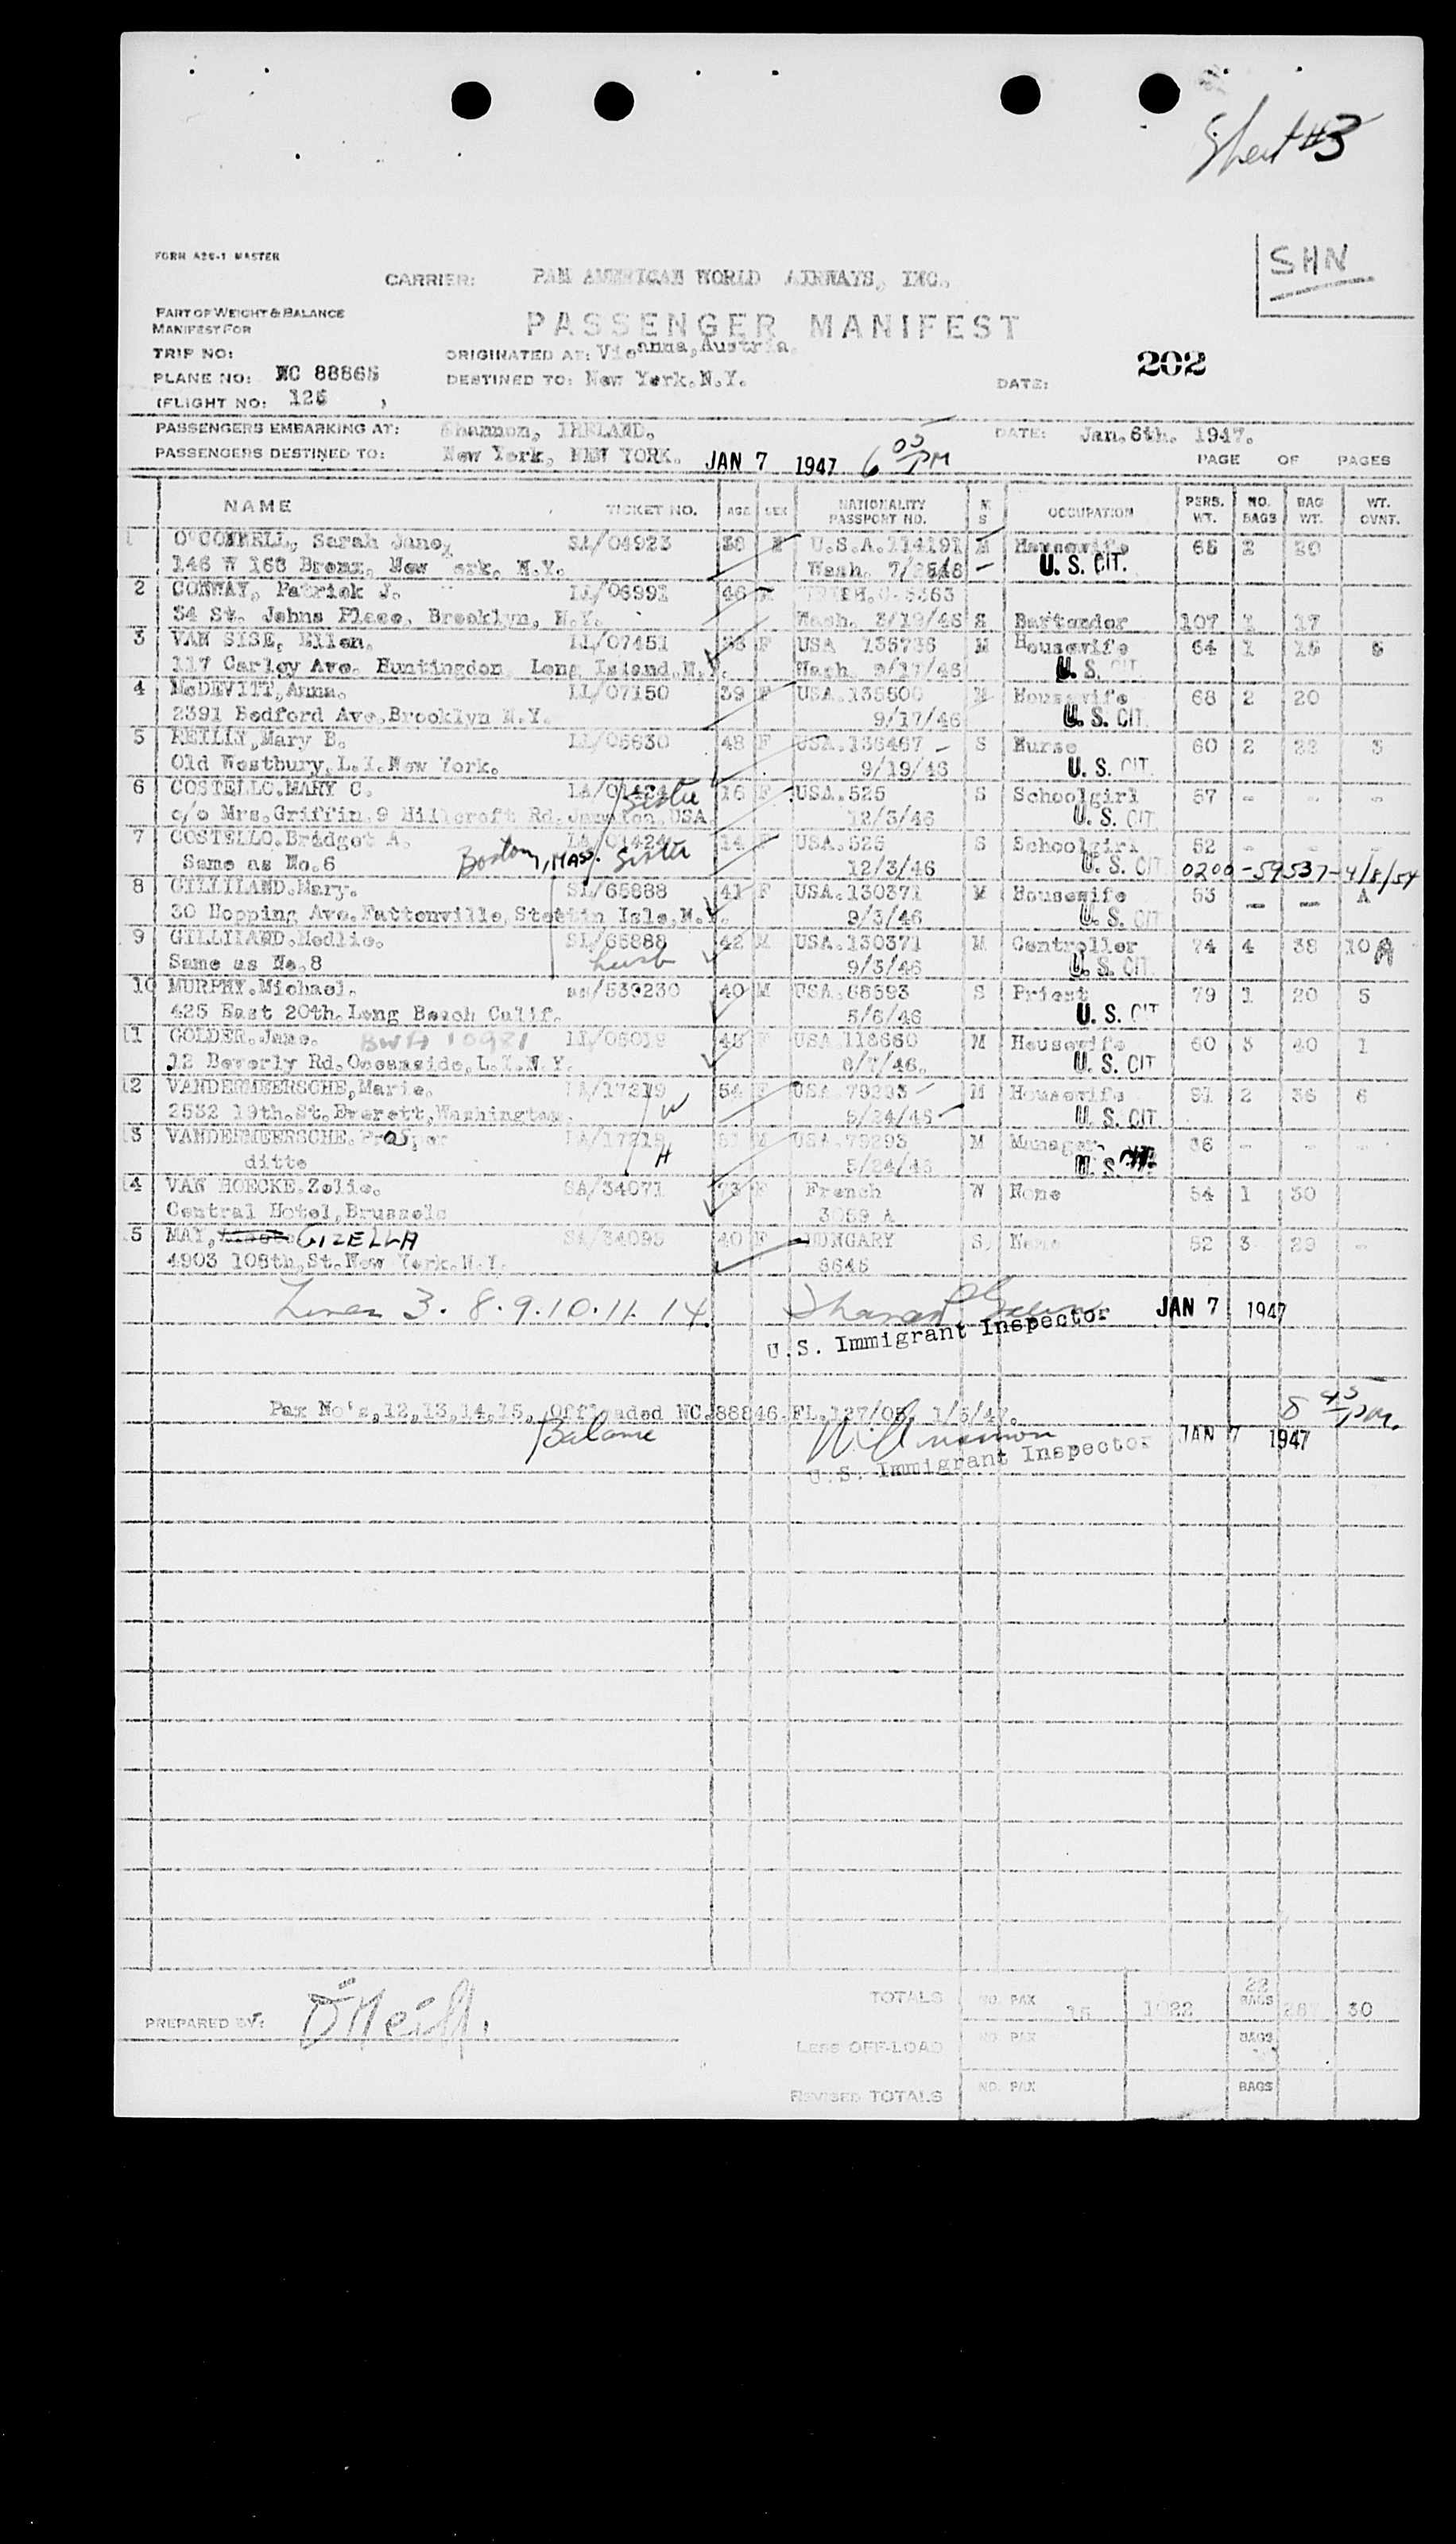 Sheet #3
SHN
FORM A26-1 MASTER
CARRIER: PAN AMERICAN WORLD AIRWAYS, INC.
PART OF WEIGHT & BALANCE
MANIFEST FOR
PASSENGER MANIFEST
TRIP NO: ORIGINATED AT: Vienna, Austria. 202
PLANE NO: NC 88865 DESTINED TO: New York. N.Y. DATE:
(FLIGHT NO: 125 )
PASSENGERS EMBARKING AT: Shannon, IRELAND. DATE: Jan. 6th. 1947.
PASSENGERS DESTINED TO: New York, NEW YORK. JAN 7 1947 6 05 PM PAGE OF PAGES
NAME TICKET NO. AGE SEX NATIONALITY PASSPORT NO. M S OCCUPATION PERS. WT. NO. BAGS BAG WT. WT. OVNT.
1 O'CONNELL, Sarah Jane, SA/04923 U.S.A. 114191 M Housewife 2
Bronx, New ork, N.Y. Wash. U.S. CIT.
2 CONWAY, Patrick J. 46
34 St. Johns Place, Brooklyn, N.Y. Wash. S Bartender 107 1 17
3 VAN SISE, Ellen. LI/07451 F USA M Housewife 64 1
117 Carley Ave. Huntingdon Long Island. N.Y. Wash. 9/17/46 U.S. CIT
4 McDEVITT, Anna. LI/07150 39 F USA. M Housewife 68 2 20
2391 Bedford Ave. Brooklyn N.Y. 9/17/46 U.S. CIT.
5 REILLY, Mary B. 48 F USA. 136467 S Nurse 60 2 3
Old Westbury, L.I. New York. 9/19/46 U.S. CIT.
6 COSTELLO. MARY C. Sister 16 F USA. 525 S Schoolgirl 57 - - -
c/o Mrs. Griffin. 9 Hillcroft Rd. USA. 12/3/46 U.S. CIT.
7 COSTELLO. Bridget A. 14 F USA. 526 S Schoolgirl 52 - - -
Same as No. 6 Boston, MASS. Sister 12/3/46 U.S. CIT 0200-59537-4/8/54
8 GILLILAND. Mary. SA/65888 41 F USA. 130371 M Housewife 53 - - A
30 Hopping Ave. Isle, N.Y. 9/3/46 U.S. CIT
9 GILLILAND. Medlie. 42 M USA. 130371 M Controller 74 4 38 10 A
Same as No. 8 husb 9/3/46 U.S. CIT
10 MURPHY. Michael. 40 M USA. 68593 S Priest 79 1 20 5
425 East 20th. Long Beach Calif. 5/6/46 U.S. CIT
11 GOLDER. Jane. USA M Housewife 60 3 40 1
12 Beverly Rd. Oceanside, L.I. N.Y. U.S. CIT
12 VANDERMEERSCHE, Marie. 54 F USA 79293 M Housewife 2 36 6
2532 19th. St. Everett, Washington. W 5/24/46 U.S. CIT
13 VANDERMEERSCHE. Prosper M USA. 79293 M Manager - - -
ditto H 5/24/46 U.S. CIT.
14 VAN HOECKE. Zelie. SA/34071 73 F French W None 54 1 30
Central Hotel, Brussels 3059 A
15 MAY, GIZELLA SA/34095 40 F HUNGARY S. None 52 3 29 -
4903 108th. St. New York. N.Y. 8645
Lines 3. 8. 9. 10. 11. 14. JAN 7 1947
U.S. Immigrant Inspector
Pax No's, 12, 13, 14, 15, Offloaded NC. 88846. FL. 127/05, 1/5/47.
Balance 8 45 PM.
U.S. Immigrant Inspector JAN 7 1947
PREPARED BY: O'Neill.
TOTALS NO. PAX 15 1022 22 BAGS 30
LESS OFF-LOAD NO. PAX BAGS
REVISED TOTALS NO. PAX BAGS